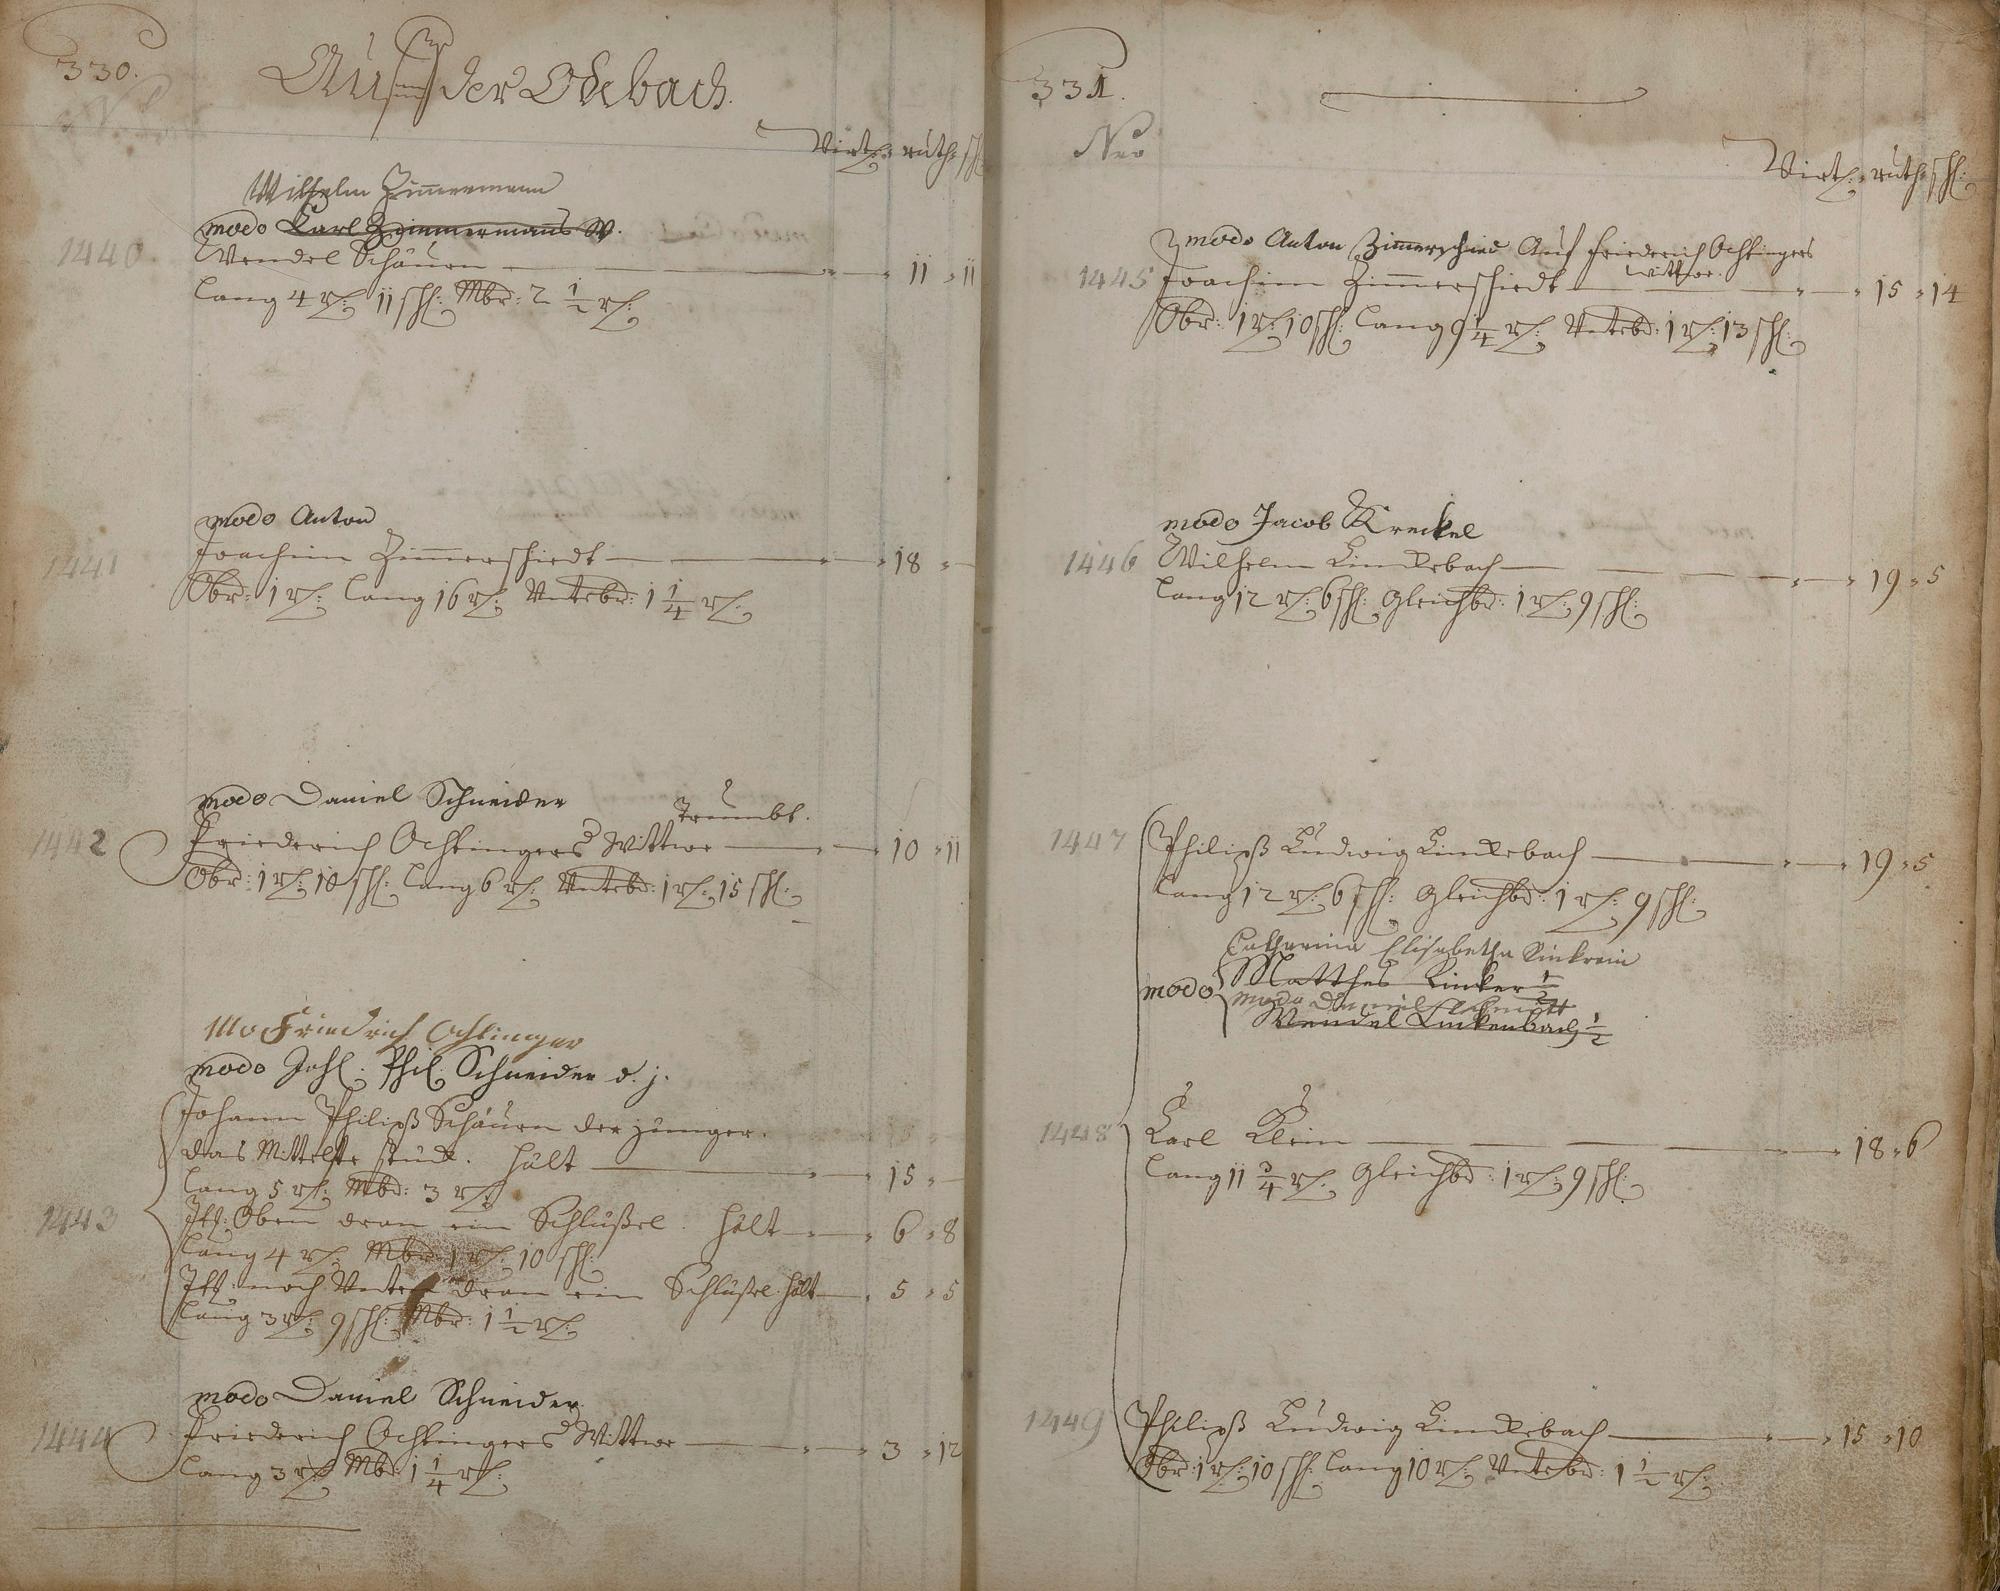 330.
Auf der Odebach.
Virt: ruth: sch
Wilhelm Zimmermann
modo Carl Zimmermans W.
1440 Wendel Schäuren 11 11
lang 4 r: 11 sch: Mbr: 2 1/2 r:
modo Anton
1441 Joachim Zimmerschiedt 18
Obr: 1 r: lang 16 r: Unterbr: 1 1/4 r:
modo Daniel Schneider
Trumbt.
1442 Friederich Ochtingers Wittwe 10 11
Obr: 1 r: 10 sch: lang 6 r: Unterbr: 1 r: 15 sch:
Mo Friedrich Ochtinger
modo Joh: Phil: Schneider d. j.
Johann Philipß Schäuren der jünger.
das Mittelste stück. hält 15
lang 5 r: Mbr: 3 r:
1443 Itt: Oben dran ein Schlüßel. hält 6 8
lang 4 r: Mbr: 1 r: 10 sch:
Itt: noch Unten dran ein Schlüßel hält 5 5
lang 3 r: 9 sch: Mbr: 1 1/2 r:
modo Daniel Schneider
1444 Friederich Ochtingers Wittwe 3 12
lang 3 r: Mbr: 1 1/4 r:
331.
Neo
Virt: ruth: sch:
modo Anton Zimerschied Auf Friederich Ochtingers
wittwe.
1445 Joachim Zimmerschiedt 15 14
Obr: 1 r: 10 sch: lang 9 1/4 r: Unterbr: 1 r: 13 sch:
modo Jacob Kreckel
1446 Wilhelm Linckebach 19 5
lang 12 r: 6 sch: Gleichbr: 1 r: 9 sch:
1447 Philipß Ludwig Linckebach 19 5
lang 12 r: 6 sch: Gleichbr: 1 r: 9 sch:
Catharina Elisabetha Linkrin
modo Matthes Linker 1/2
modo Daniel
Wendel Linkenbach 1/2
1448 Carl Klein 18 6
lang 11 3/4 r: Gleichbr: 1 r: 9 sch:
1449 Philipß Ludwig Linckebach 15 10
Obr: 1 r: 10 sch: lang 10 r: Unterbr: 1 1/2 r: